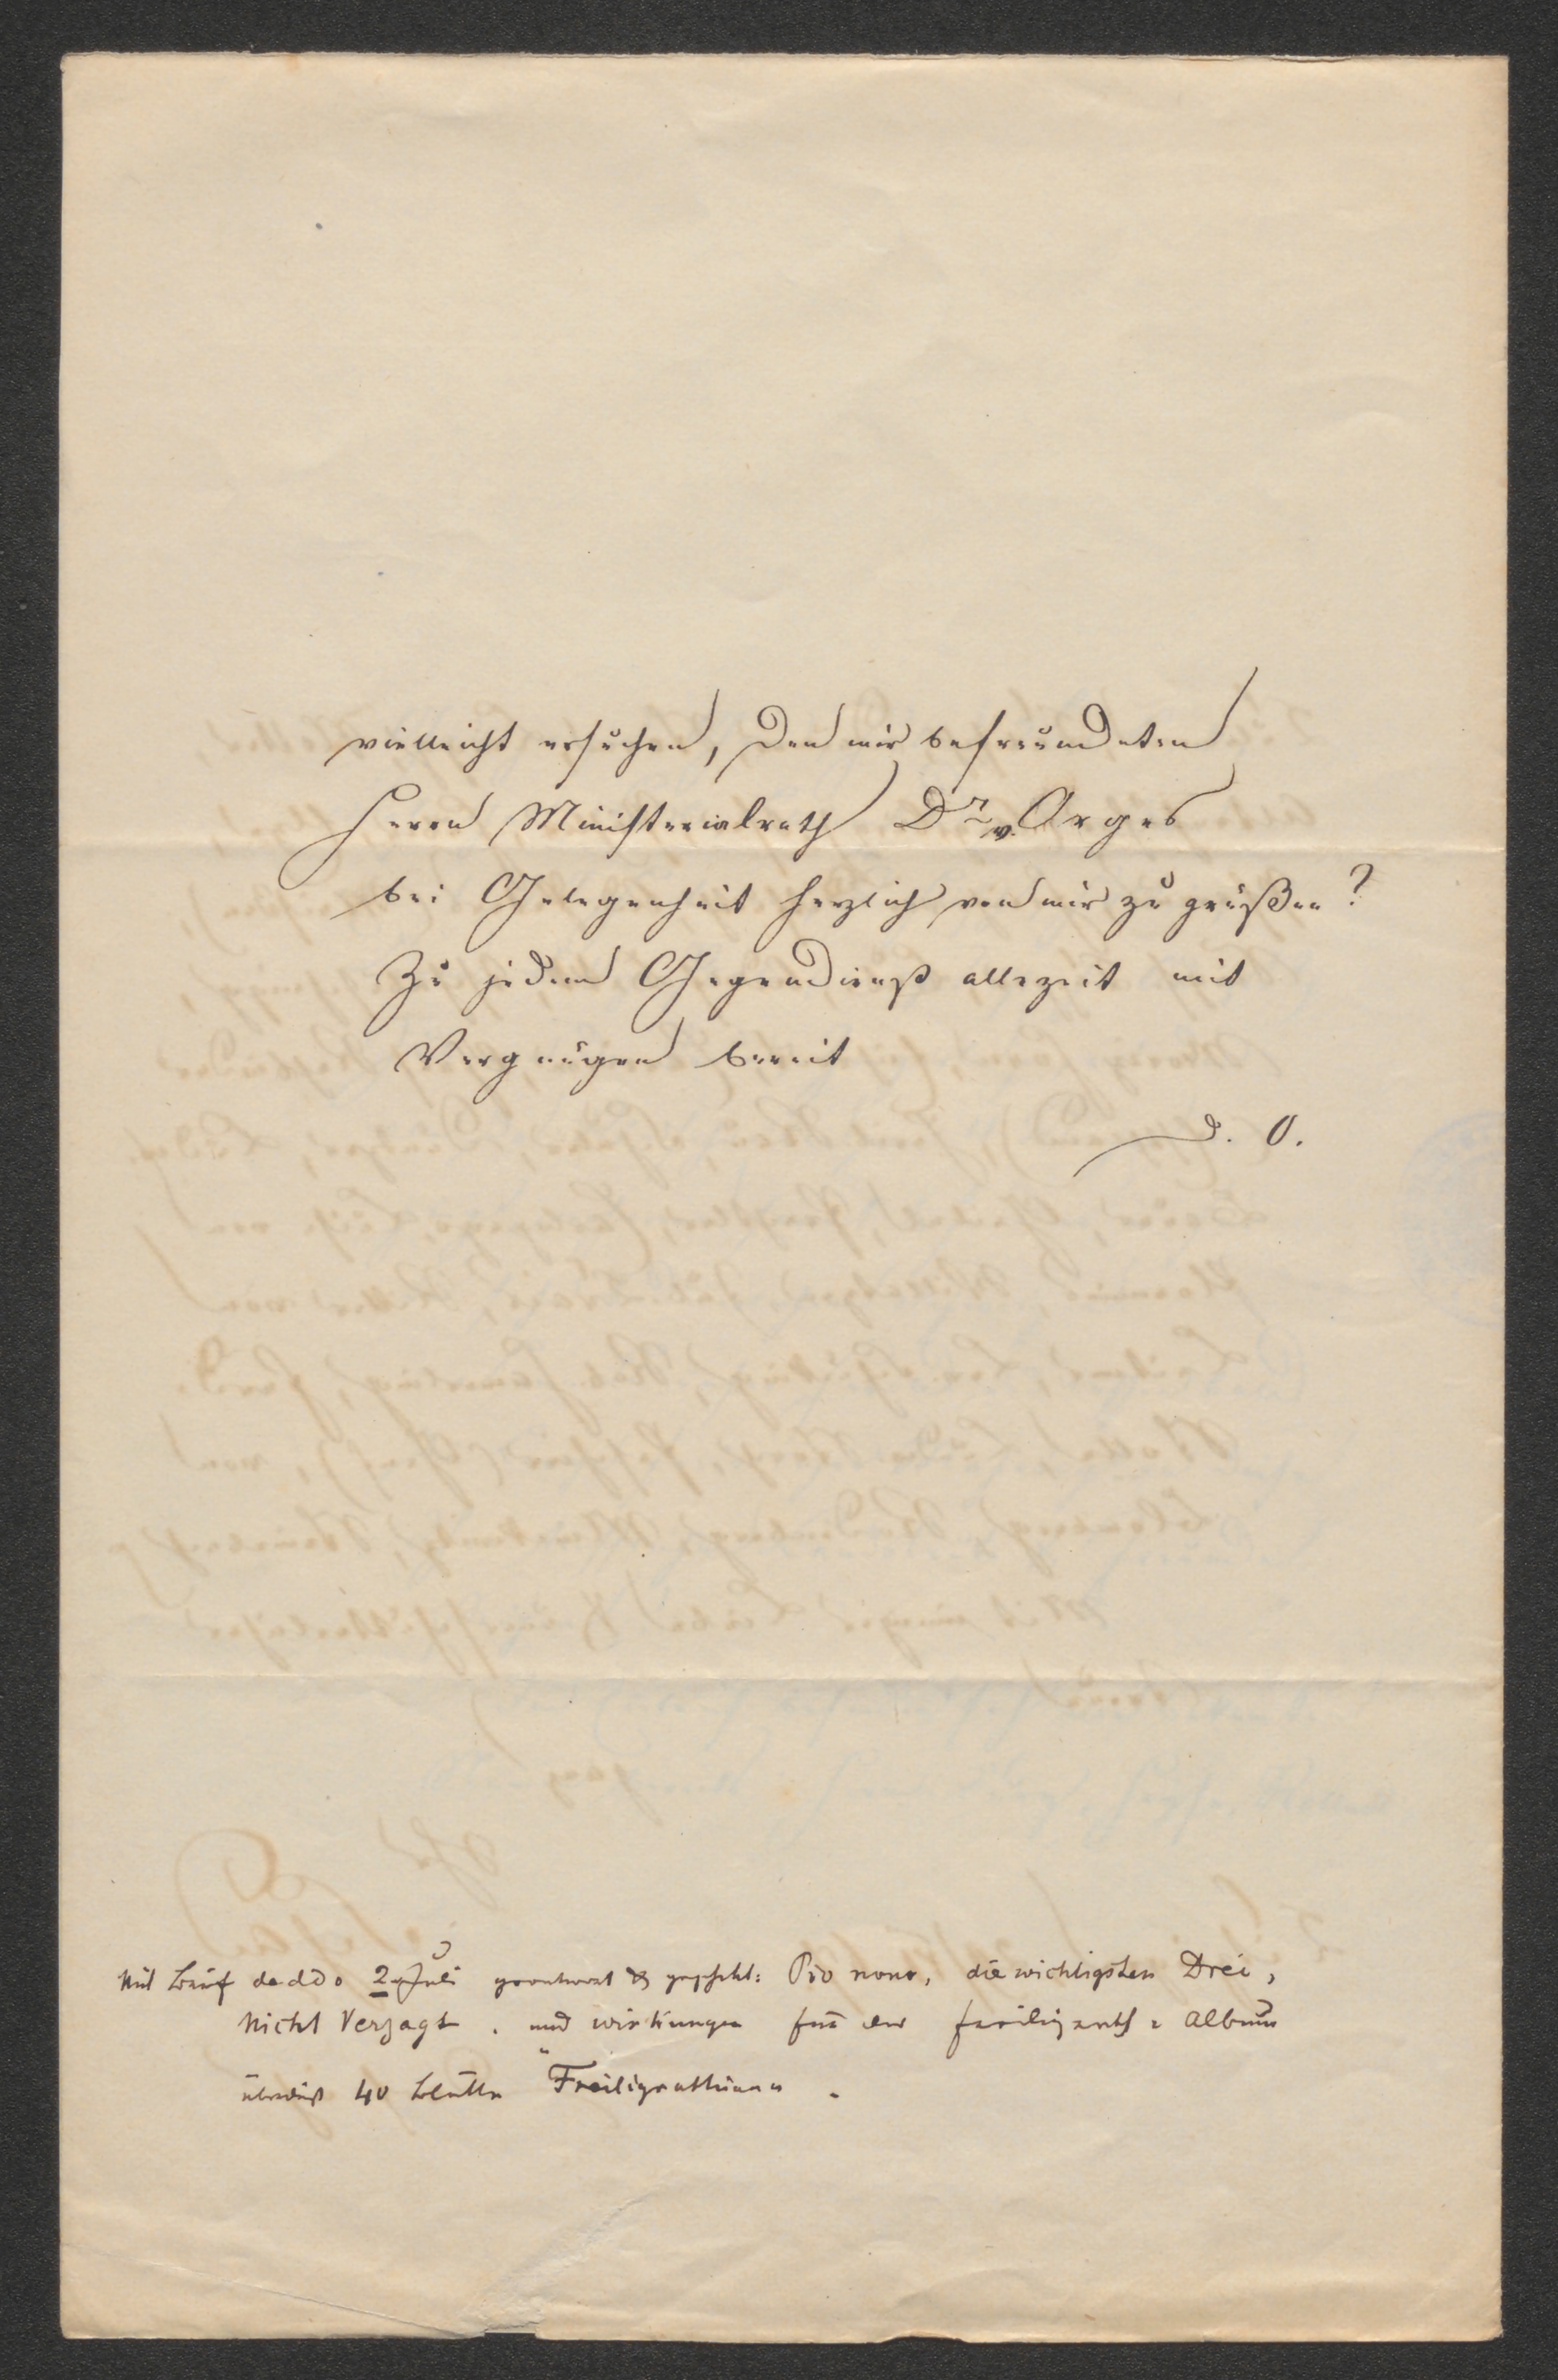 vielleicht ersuchen, den mir befreundeten
Herrn Ministerialrath Dr v. Orges
bei Gelegenheit herzlich von mir zu grüßen?
Zu jedem Gegendienst allezeit mit
Vergnügen bereit
d. O.
Mit Brief de ddo 2. Juli geantwort & geschikt: Pio nono, die wichtigsten Drei,
Nicht Verzagt. und wirkungen für das freiligrath = Album
überdieß 40 Blätter "Freiligrathiana.